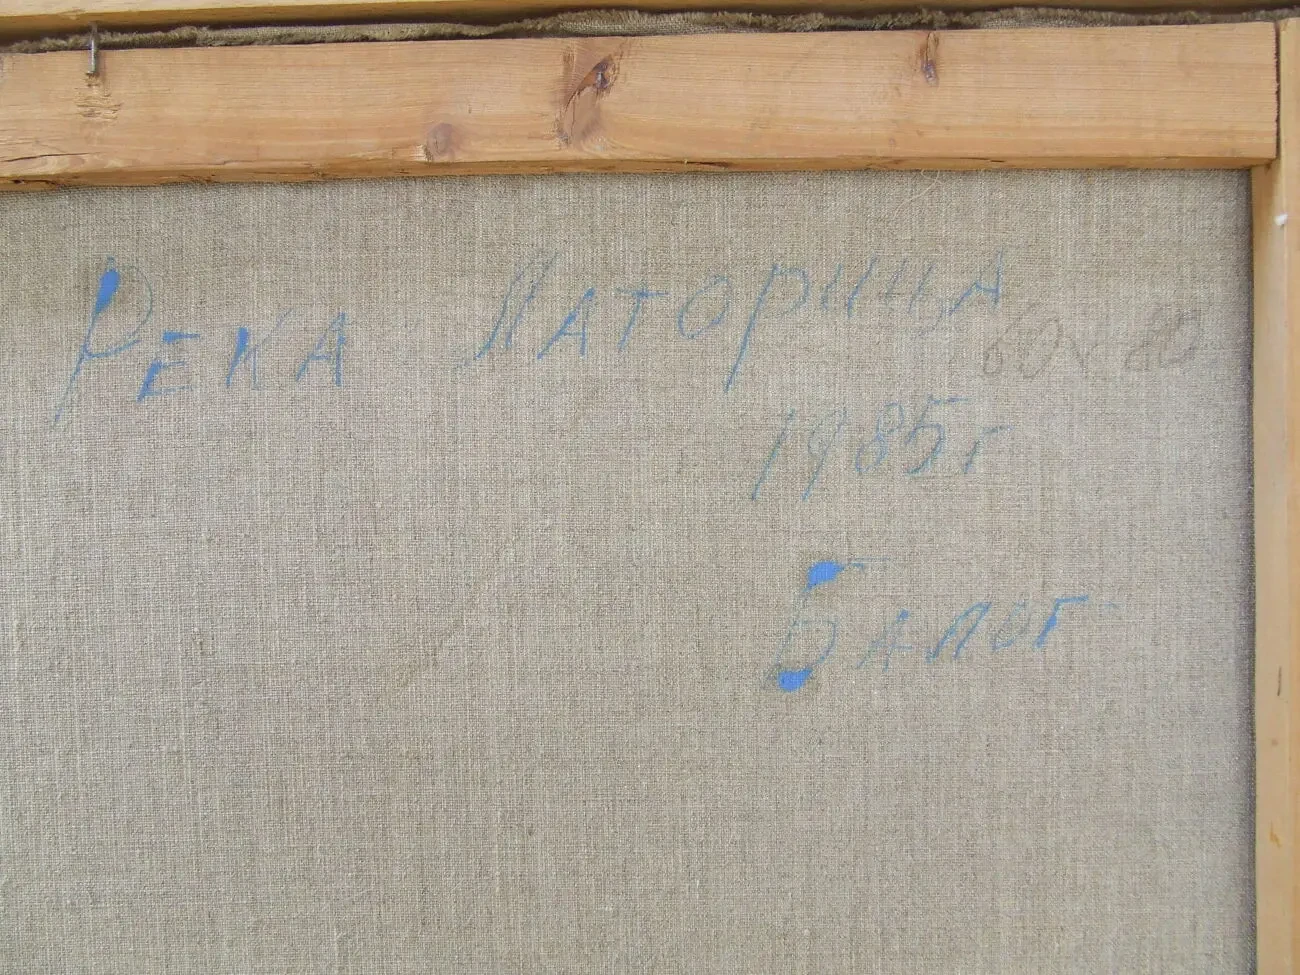 Река Латорица
60x80
1985г
Балог